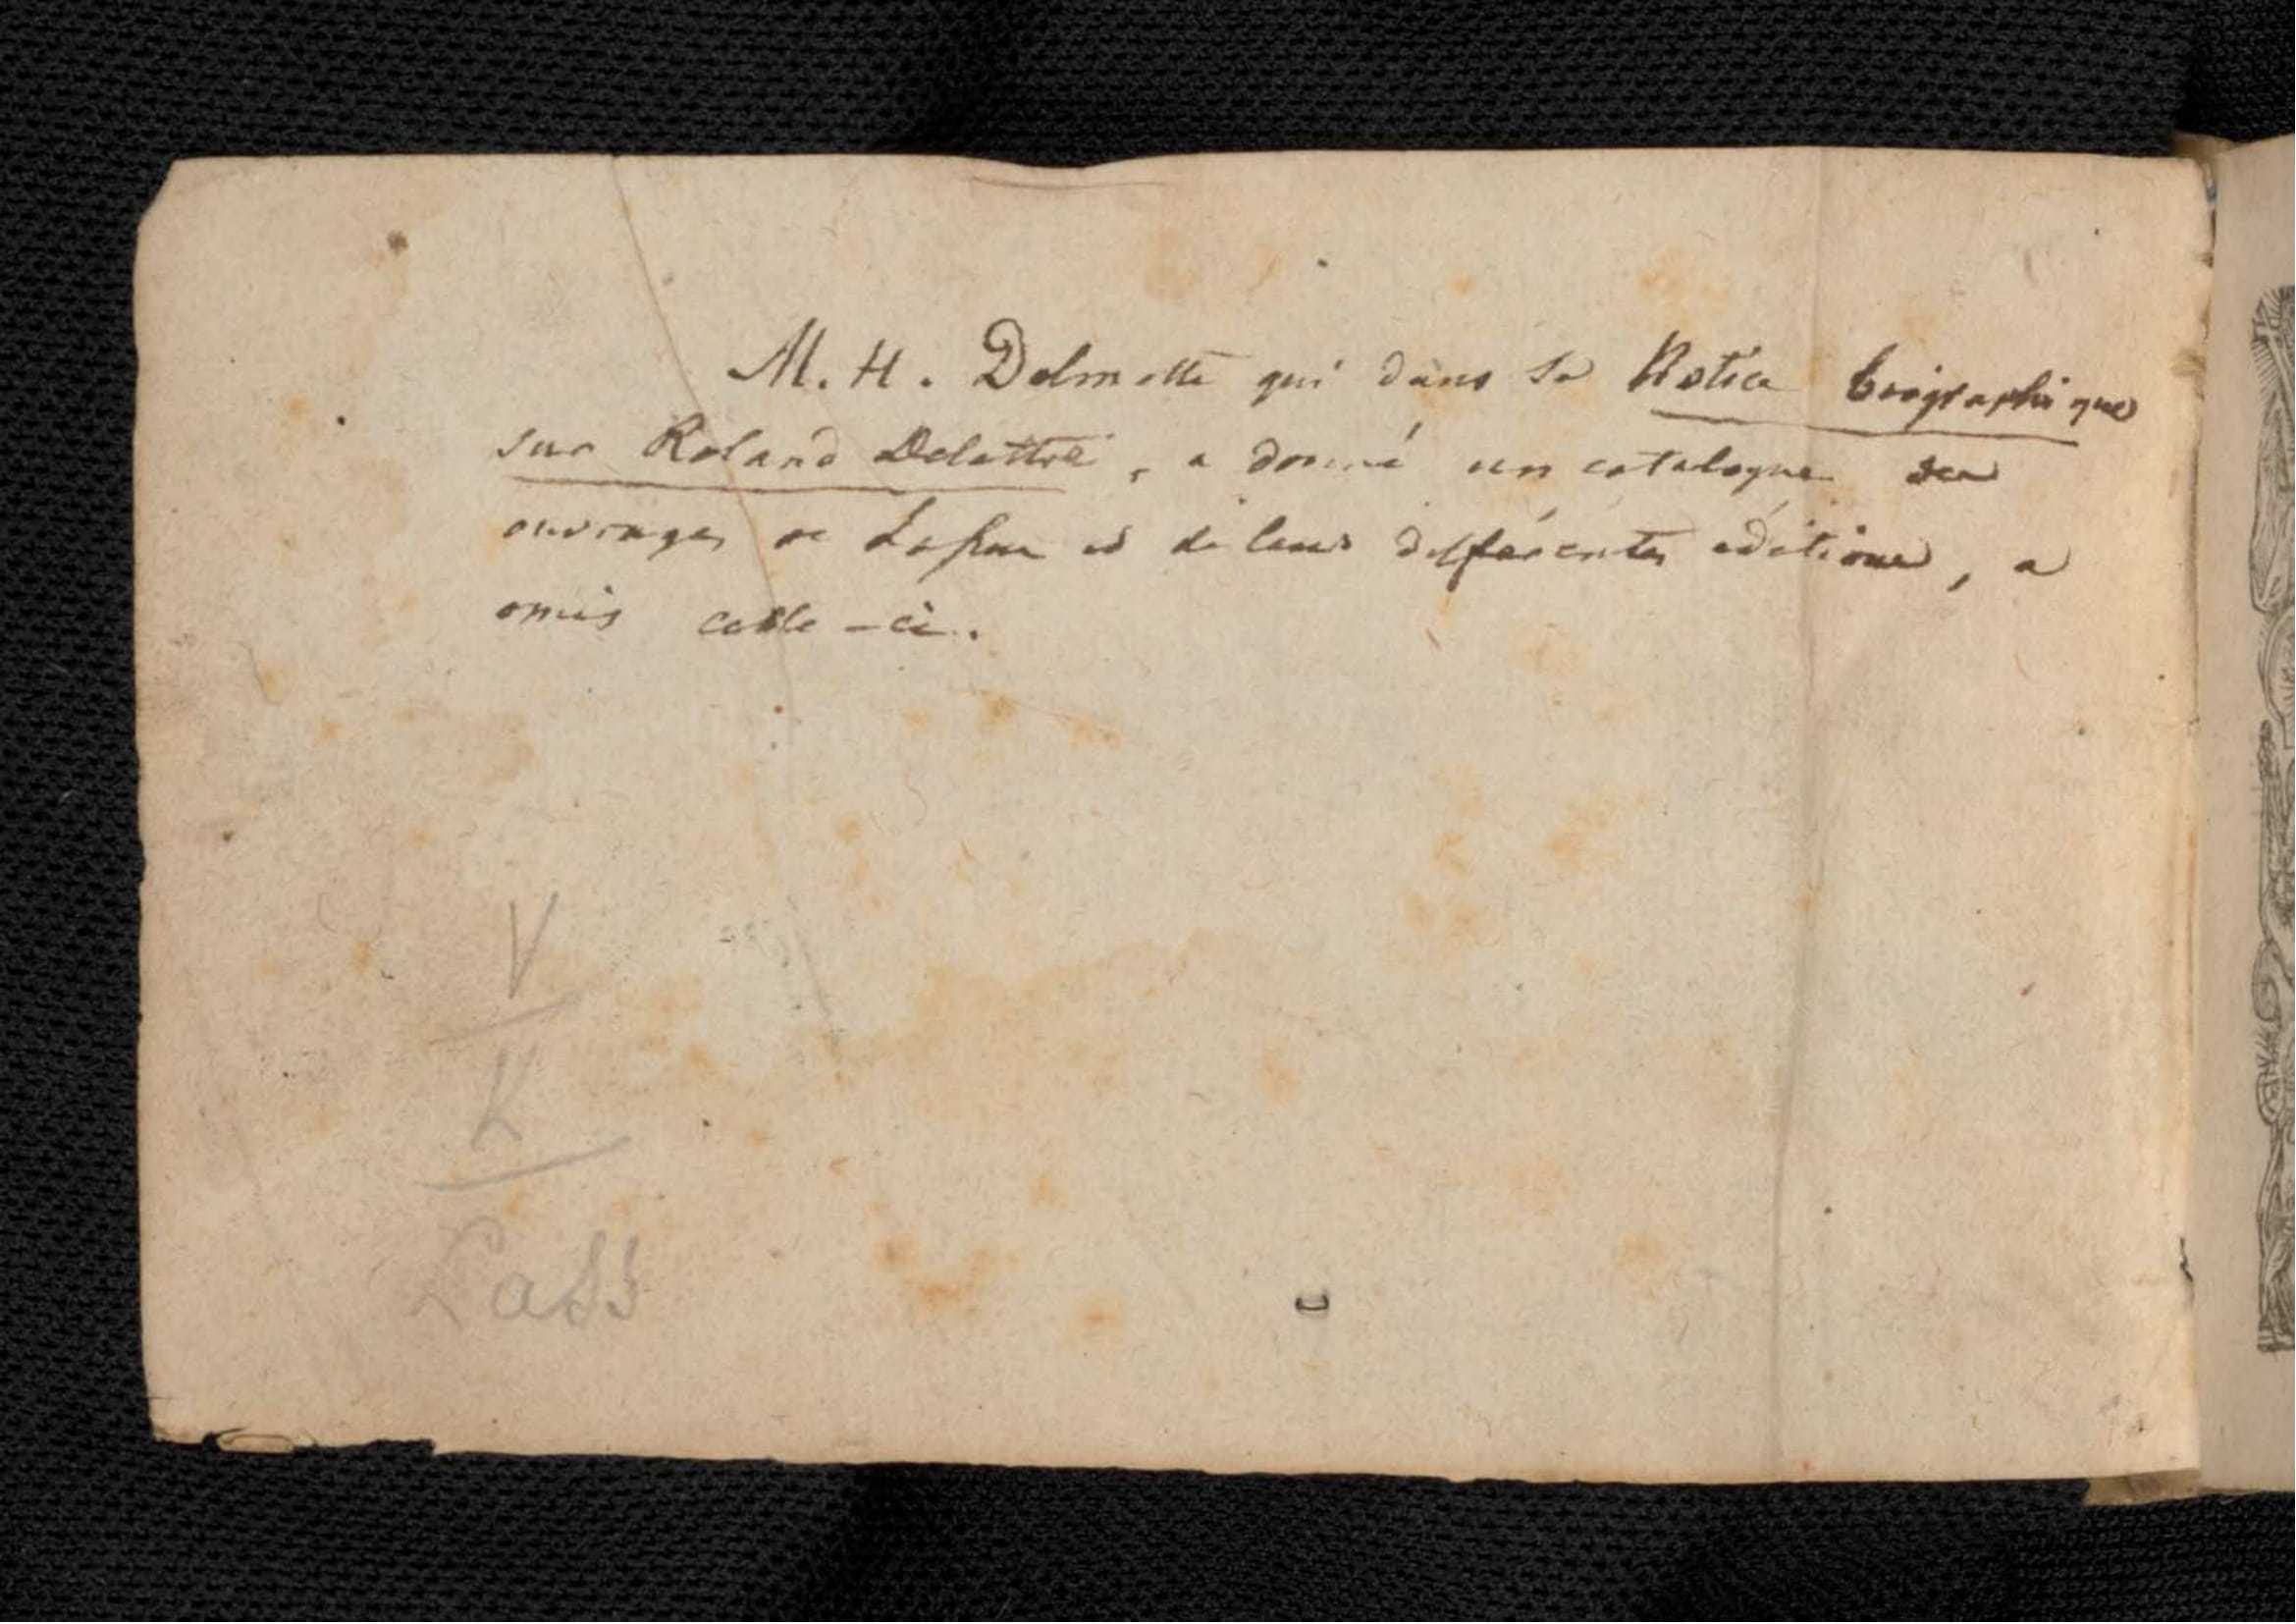 M. H. Delmotte qui dans sa Notice biographique
sur Roland Delattre, a donné un catalogue des
ouvrages de Lassus et de leurs différentes éditions, a
omis celle-ci.
V
L
Lass